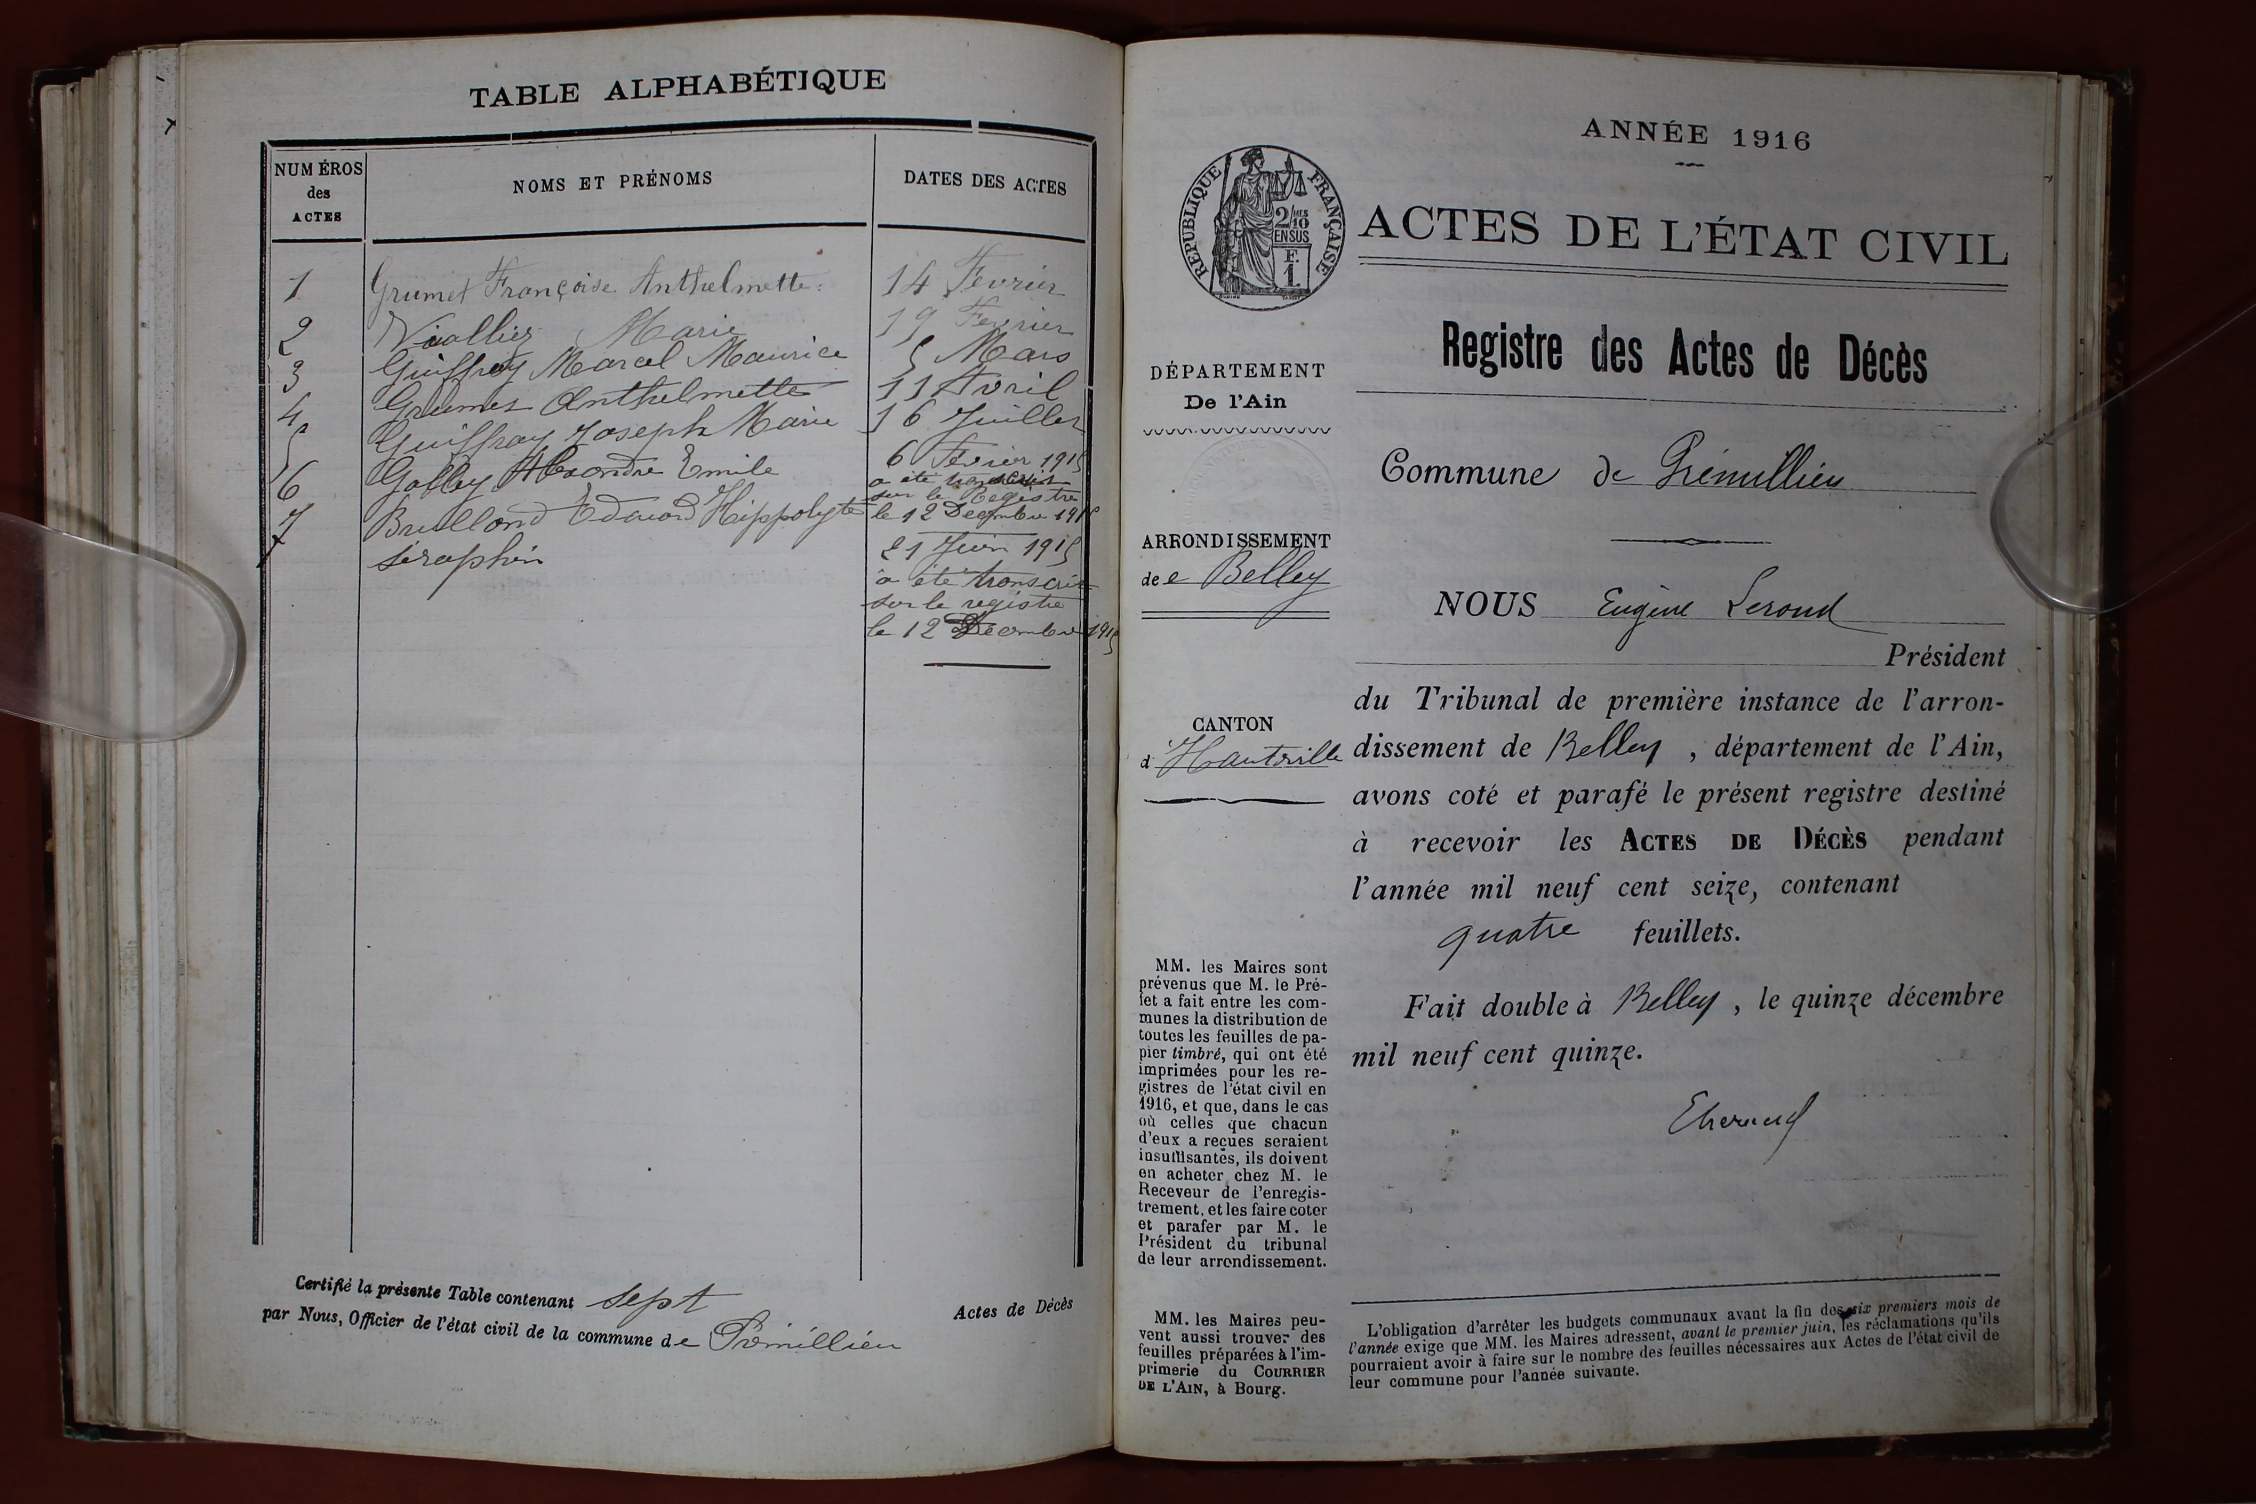 TABLE ALPHABÉTIQUE
NUMÉROS
des
ACTES
NOMS ET PRÉNOMS
DATES DES ACTES
1 Grumet Françoise Anthelmette 14 Fevrier
2 Marie 19 Fevrier
3 Guiffray Marcel Maurice 5 Mars
4 Grumet Anthelmette 11 Avril
5 Guiffray Joseph Marie 16 Juillet
6 Golley Alexandre Emile 6 Février 1915
a été transcrit
sur le Registre
le 12 Decembre 1915
7 Brulland Edouard Hippolyte
séraphin
21 Juin 1915
a été transcrit
sur le registre
le 12 Décembre 1915
Certifié la présente Table contenant sept Actes de Décès
par Nous, Officier de l'état civil de la commune de Prémillieu
ANNÉE 1916
RÉPUBLIQUE FRANÇAISE
2/10
EN SUS
F.
1
ACTES DE L'ÉTAT CIVIL
Registre des Actes de Décès
DÉPARTEMENT
De l'Ain
Commune de Prémillieu
ARRONDISSEMENT
de e Belley
CANTON
d'Hauteville
NOUS Eugène
Président
du Tribunal de première instance de l'arron-
dissement de Belley, département de l'Ain,
avons coté et parafé le présent registre destiné
à recevoir les ACTES DE DÉCÈS pendant
l'année mil neuf cent seize, contenant
quatre feuillets.
Fait double à Belley, le quinze décembre
mil neuf cent quinze.
MM. les Maires sont
prévenus que M. le Pré-
fet a fait entre les com-
munes la distribution de
toutes les feuilles de pa-
pier timbré, qui ont été
imprimées pour les re-
gistres de l'état civil en
1916, et que, dans le cas
où celles que chacun
d'eux a reçues seraient
insuffisantes, ils doivent
en acheter chez M. le
Receveur de l'enregis-
trement, et les faire coter
et parafer par M. le
Président du tribunal
de leur arrondissement.
MM. les Maires peu-
vent aussi trouver des
feuilles préparées à l'im-
primerie du COURRIER
DE L'AIN, à Bourg.
L'obligation d'arrêter les budgets communaux avant la fin des six premiers mois de
l'année exige que MM. les Maires adressent, avant le premier juin, les réclamations qu'ils
pourraient avoir à faire sur le nombre des feuilles nécessaires aux Actes de l'état civil de
leur commune pour l'année suivante.